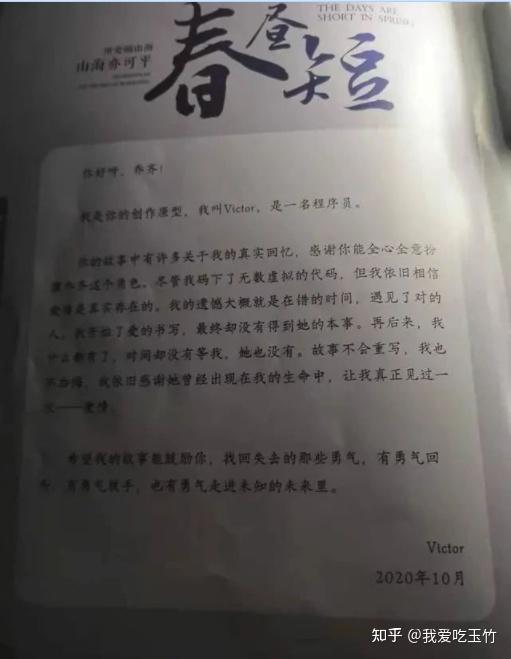 THE DAYS ARE
SHORT IN SPRING
春昼短
所爱隔山海
山海亦可平
你好呀，乔齐！
我是你的创作原型，我叫Victor，是一名程序员。
你的故事中有许多关于我的真实回忆，感谢你能全心全意扮
演乔齐这个角色。尽管我码下了无数虚拟的代码，但我依旧相信
爱情是真实存在的。我的遗憾大概就是在错的时间，遇见了对的
人，我开始了爱的书写，最终却没有得到她的本事。再后来，我
什么都有了，时间却没有等我，她也没有。故事不会重写，我也
不后悔，我依旧感谢她曾经出现在我的生命中，让我真正见过一
次——爱情。
希望我的故事能鼓励你，找回失去的那些勇气，有勇气回
有勇气放手，也有勇气走进未知的未来里。
Victor
2020年10月
知乎 @我爱吃玉竹